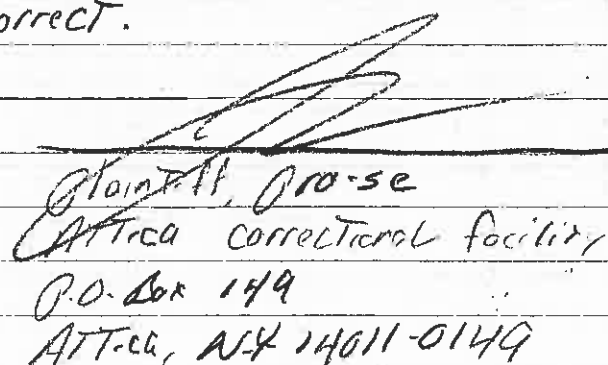 orrect.
Plaintiff, Pro-se
Attica correctional facility
P.O. Box 149
Attica, N.Y 14011-0149